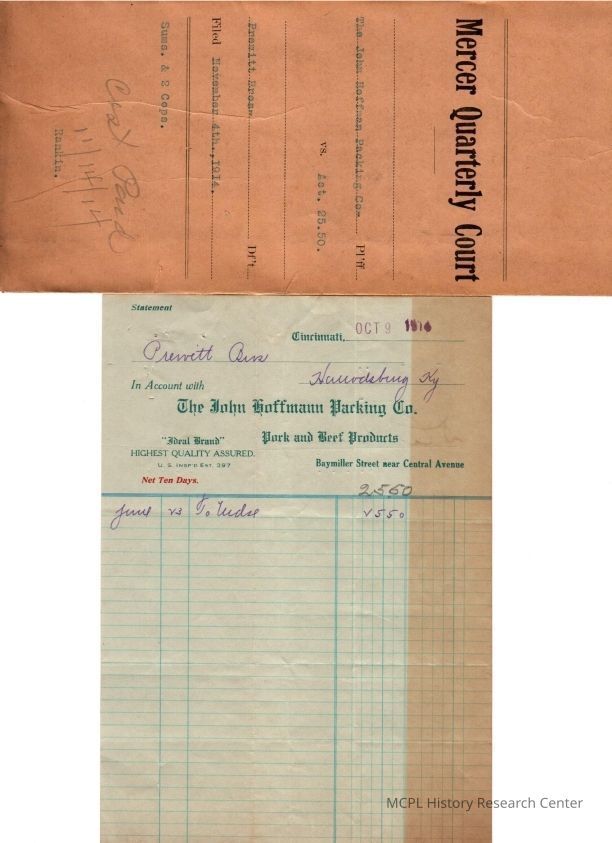 Mercer Quarterly Court
The John Hoffman Packing Co. Pl'ff.
vs. Act. 25.50.
Prewitt Bros. Df't.
Filed November 4th.,1914.
Sums. & 2 Cops.
Cost Paid
11/14/14
Rankin.
Statement
Cincinnati, OCT 9 1914
Prewitt Bros
Harrodsburg Ky
In Account with
The John Hoffmann Packing Co.
"Ideal Brand" Pork and Beef Products
HIGHEST QUALITY ASSURED.
U. S. INSP'D EST. 397
Baymiller Street near Central Avenue
Net Ten Days.
2550
June 23 To Mdse 2550
MCPL History Research Center